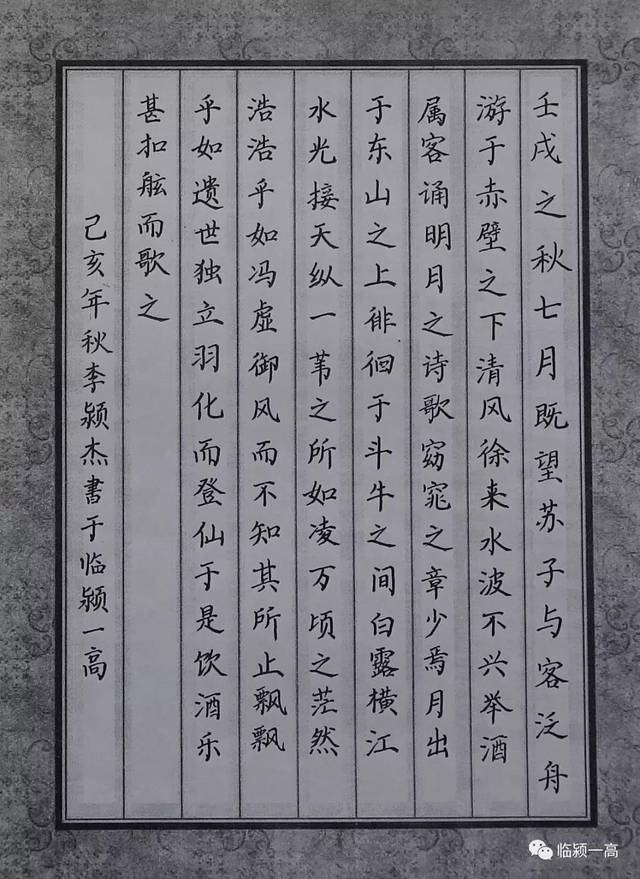 壬戌之秋七月既望苏子与客泛舟
游于赤壁之下清风徐来水波不兴举酒
属客诵明月之诗歌窈窕之章少焉月出
于东山之上徘徊于斗牛之间白露横江
水光接天纵一苇之所如凌万顷之茫然
浩浩乎如冯虚御风而不知其所止飘飘
乎如遗世独立羽化而登仙于是饮酒乐
甚扣舷而歌之
己亥年秋李颍杰书于临颍一高
临颍一高